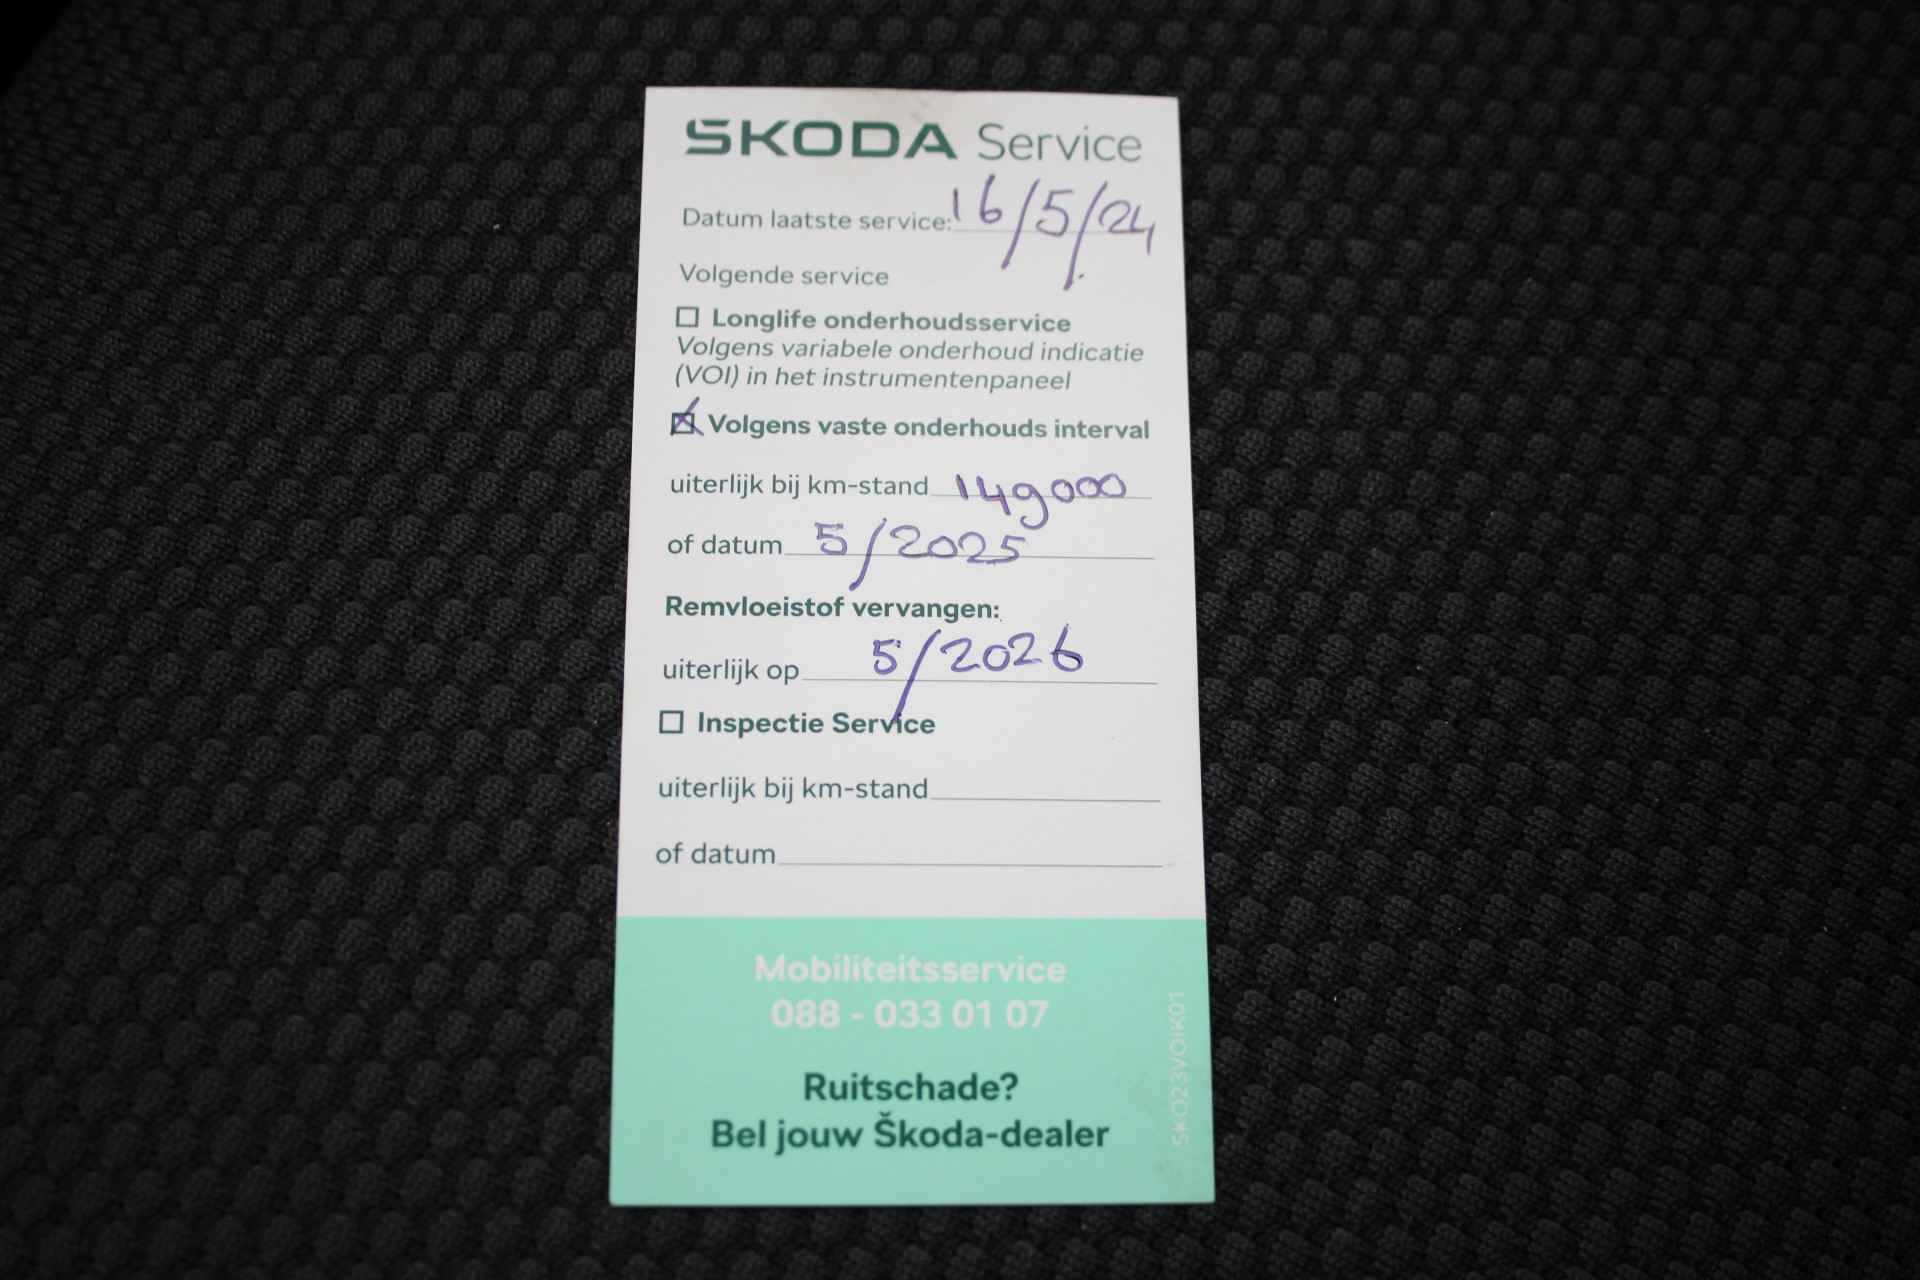 ŠKODA Service
Datum laatste service: 16/5/24
Volgende service
Longlife onderhoudsservice
Volgens variabele onderhoud indicatie
(VOI) in het instrumentenpaneel
Volgens vaste onderhouds interval
uiterlijk bij km-stand 149000
of datum 5/2025
Remvloeistof vervangen:
uiterlijk op 5/2026
Inspectie Service
uiterlijk bij km-stand
of datum
Mobiliteitsservice
088 - 033 01 07
Ruitschade?
Bel jouw Škoda-dealer
SKO23VOIK01